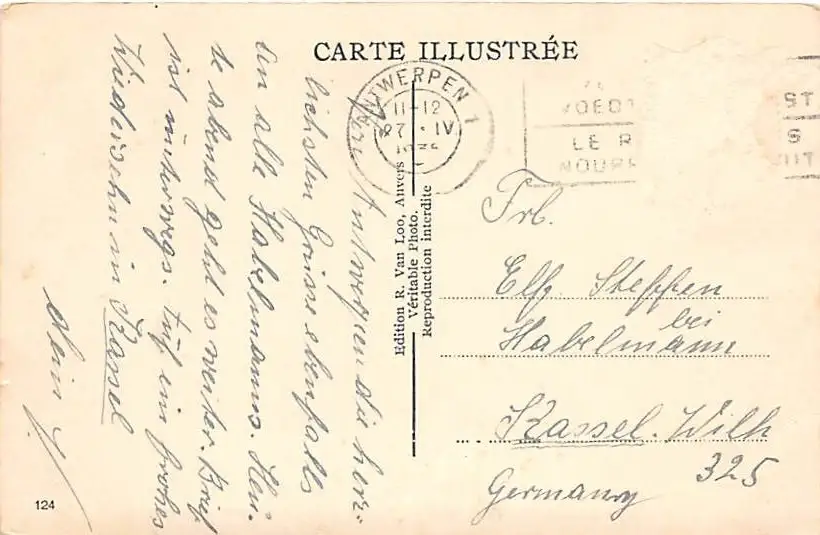 CARTE ILLUSTRÉE
ANTWERPEN 1
11-12
27 IV
VOEDT
LE R
NOURR
ST
S
UIT
Von Antwerpen die herz-
lichsten Grüsse ebenfalls
an alle Habelmanns. Heu-
te abend geht es weiter. Brief
ist unterwegs. Auf ein frohes
Wiedersehn in Kassel
dein
Edition R. Van Loo, Anvers
Véritable Photo.
Reproduction interdite
Frl.
Elfr. Steffen
bei
Habelmann
Kassel. Wilh
325
Germany
124